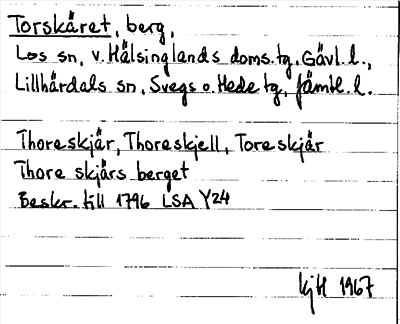 Torskäret, berg,
Los sn, v. Hälsinglands doms.tg, Gävl. l.,
Lillhärdals sn, Svegs o. Hede tg, Jämtl. l.
Thoreskjär, Thoreskjell, Toreskjär
Thore skjärs berget
Beskr. till 1796 LSA Y24
kjH 1967